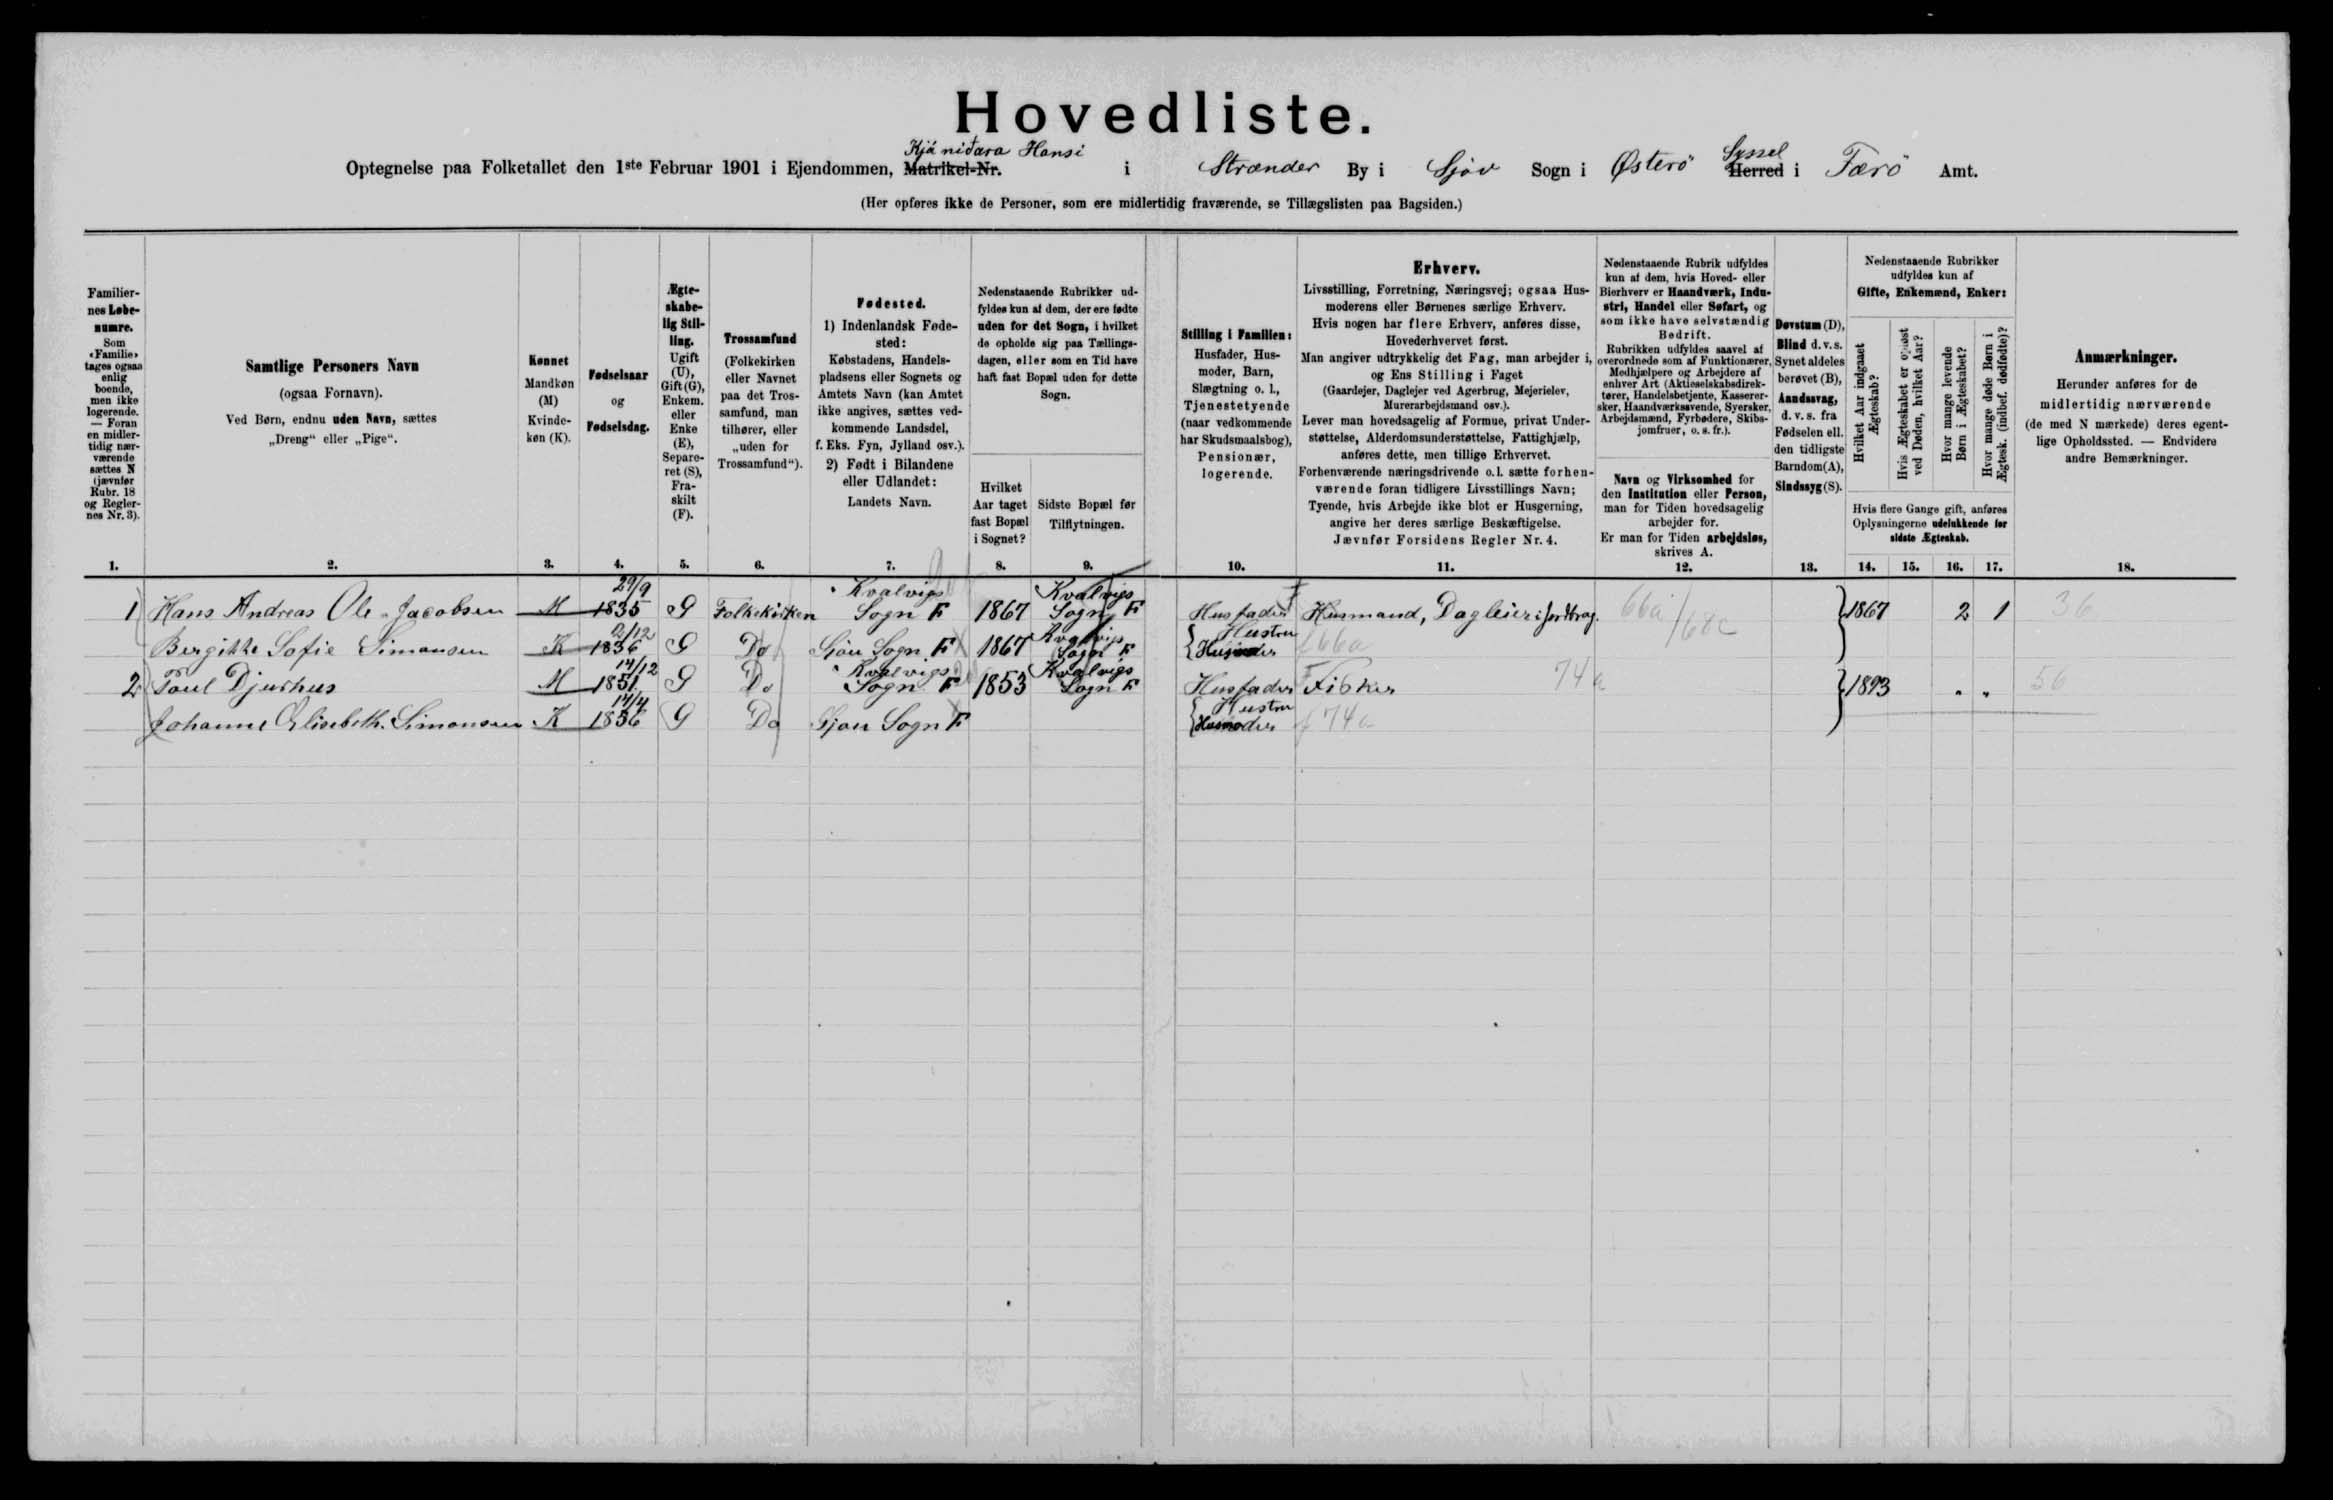 Hovedliste.
Optegnelse paa Folketallet den 1ste Februar 1901 i Ejendommen, Matrikel-Nr. Kjá niðara Hansi i Strænder By i Sjóv Sogn i Østerö Herred Syssel i Færö Amt.
(Her opføres ikke de Personer, som ere midlertidig fraværende, se Tillægslisten paa Bagsiden.)
Familiernes Løbenumre.
Som «Familie» tages ogsaa enlig boende, men ikke logerende. — Foran en midlertidig nærværende sættes N (jævnfør Rubr. 18 og Reglernes Nr. 3).
Samtlige Personers Navn
(ogsaa Fornavn).
Ved Børn, endnu uden Navn, sættes
„Dreng“ eller „Pige“.
Kønnet
Mandkøn (M)
Kvindekøn (K).
Fødselsaar
og
Fødselsdag.
Ægteskabelig Stilling.
Ugift (U), Gift (G), Enkem. eller Enke (E), Separeret (S), Fraskilt (F).
Trossamfund
(Folkekirken eller Navnet paa det Trossamfund, man tilhører, eller „uden for Trossamfund“).
Fødested.
1) Indenlandsk Fødested:
Købstadens, Handelspladsens eller Sognets og Amtets Navn (kan Amtet ikke angives, sættes vedkommende Landsdel, f. Eks. Fyn, Jylland osv.).
2) Født i Bilandene eller Udlandet:
Landets Navn.
Nedenstaaende Rubrikker udfyldes kun af dem, der ere fødte uden for det Sogn, i hvilket de opholde sig paa Tællingsdagen, eller som en Tid have haft fast Bopæl uden for dette Sogn.
Hvilket Aar taget fast Bopæl i Sognet?
Sidste Bopæl før Tilflytningen.
Stilling i Familien:
Husfader, Husmoder, Barn, Slægtning o. l., Tjenestetyende (naar vedkommende har Skudsmaalsbog), Pensionær, logerende.
Erhverv.
Livsstilling, Forretning, Næringsvej; ogsaa Husmoderens eller Børnenes særlige Erhverv.
Hvis nogen har flere Erhverv, anføres disse, Hovederhvervet først.
Man angiver udtrykkelig det Fag, man arbejder i, og Ens Stilling i Faget
(Gaardejer, Daglejer ved Agerbrug, Mejerielev, Murerarbejdsmand osv.).
Lever man hovedsagelig af Formue, privat Understøttelse, Alderdomsunderstøttelse, Fattighjælp, anføres dette, men tillige Erhvervet.
Forhenværende næringsdrivende o. l. sætte forhenværende foran tidligere Livsstillings Navn;
Tyende, hvis Arbejde ikke blot er Husgerning, angive her deres særlige Beskæftigelse.
Jævnfør Forsidens Regler Nr. 4.
Nedenstaaende Rubrik udfyldes kun af dem, hvis Hoved- eller Bierhverv er Haandværk, Industri, Handel eller Søfart, og som ikke have selvstændig Bedrift.
Rubrikken udfyldes saavel af overordnede som af Funktionærer, Medhjælpere og Arbejdere af enhver Art (Aktieselskabsdirektører, Handelsbetjente, Kasserersker, Haandværkssvende, Syersker, Arbejdsmænd, Fyrbødere, Skibsjomfruer, o. s. fr.).
Navn og Virksomhed for den Institution eller Person, man for Tiden hovedsagelig arbejder for.
Er man for Tiden arbejdsløs, skrives A.
Døvstum (D), Blind d. v. s. Synet aldeles berøvet (B), Aandssvag, d. v. s. fra Fødselen ell. den tidligste Barndom (A), Sindssyg (S).
Nedenstaaende Rubrikker udfyldes kun af
Gifte, Enkemænd, Enker:
Hvilket Aar indgaaet Ægteskab?
Hvis Ægteskabet er opløst ved Døden, hvilket Aar?
Hvor mange levende Børn i Ægteskabet?
Hvor mange døde Børn i Ægtesk. (indbef. dødfødte)?
Hvis flere Gange gift, anføres Oplysningerne udelukkende for sidste Ægteskab.
Anmærkninger.
Herunder anføres for de midlertidig nærværende (de med N mærkede) deres egentlige Opholdssted. — Endvidere andre Bemærkninger.
1. 2. 3. 4. 5. 6. 7. 8. 9. 10. 11. 12. 13. 14. 15. 16. 17. 18.
1 Hans Andreas Ole Jacobsen M 29/9 1835 G Folkekirken Kvalvigs Sogn F 1867 Kvalvigs Sogn F Husfader Husmand, Dagleier i Jordbrag. 66a/68c 1867 2 1 36
Bergitte Sofie Simonsen K 2/12 1836 G Do Sjóu Sogn F 1867 Kvalvigs Sogn F Hustru Husmoder f 66a
2 Poul Djurhus M 14/12 1851 G Do Kvalvigs Sogn F 1853 Kvalvigs Sogn F Husfader Fisker 74a 1893 " " 56
Johanne Elisebeth Simonsen K 14/4 1856 G Do Sjóu Sogn F Hustru Husmoder f 74a